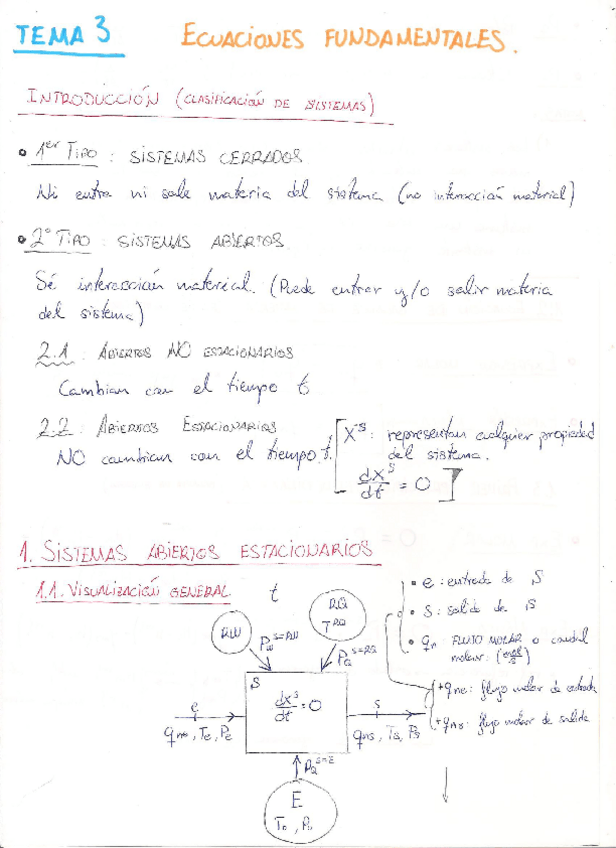 TEMA 3 ECUACIONES FUNDAMENTALES.
INTRODUCCIÓN (CLASIFICACIÓN DE SISTEMAS)
• 1er TIPO : SISTEMAS CERRADOS
Ni entra ni sale materia del sistema (no interacción material)
• 2º TIPO : SISTEMAS ABIERTOS
Sí interacción material. (Puede entrar y/o salir materia
del sistema)
2.1 : ABIERTOS NO ESTACIONARIOS
Cambian con el tiempo t
2.2 : ABIERTOS ESTACIONARIOS
NO cambian con el tiempo t.
[X^S : representan cualquier propiedad
del sistema.
dX^S/dt = 0]
1. SISTEMAS ABIERTOS ESTACIONARIOS
1.1. VISUALIZACIÓN GENERAL t
• e : entrada de S
• s : salida de S
• qn : FLUJO MOLAR o caudal
molar : (mol/s)
+qne : flujo molar de entrada
+qns : flujo molar de salida
RW
P_W^S=RW
RQ
T^RQ
P_Q^S=RQ
S
dX^S/dt = 0
e
qne, Te, Pe
s
qns, Ts, Ps
P_Q^S=E
E
To, Po